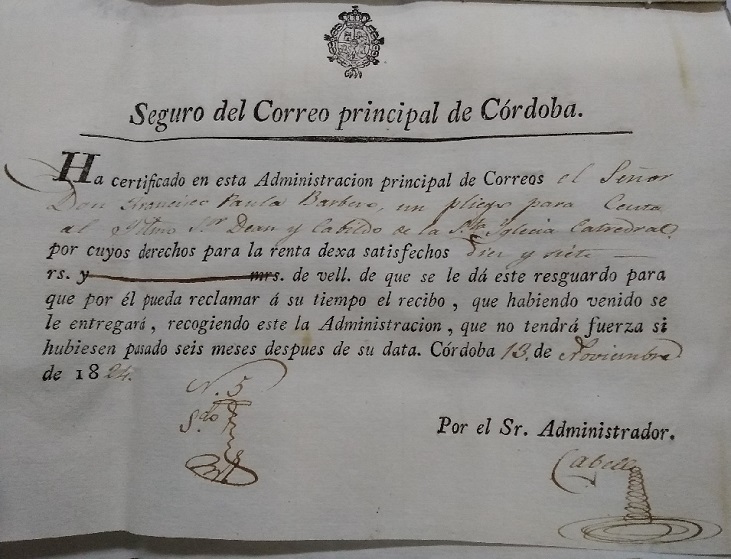 Seguro del Correo principal de Córdoba.
Ha certificado en esta Administracion principal de Correos el Señor
Don Francisco Paula Barbero, un pliego para Ceuta
al Yltmo Sr Dean y Cabildo de la Sta Iglecia Catredral,
por cuyos derechos para la renta dexa satisfechos diez y siete
rs. y mrs. de vell. de que se le dá este resguardo para
que por él pueda reclamar á su tiempo el recibo, que habiendo venido se
le entregará, recogiendo este la Administracion, que no tendrá fuerza si
hubiesen pasado seis meses despues de su data. Córdoba 13. de Noviembre
de 1824.
N. 5
Por el Sr. Administrador.
Cabello